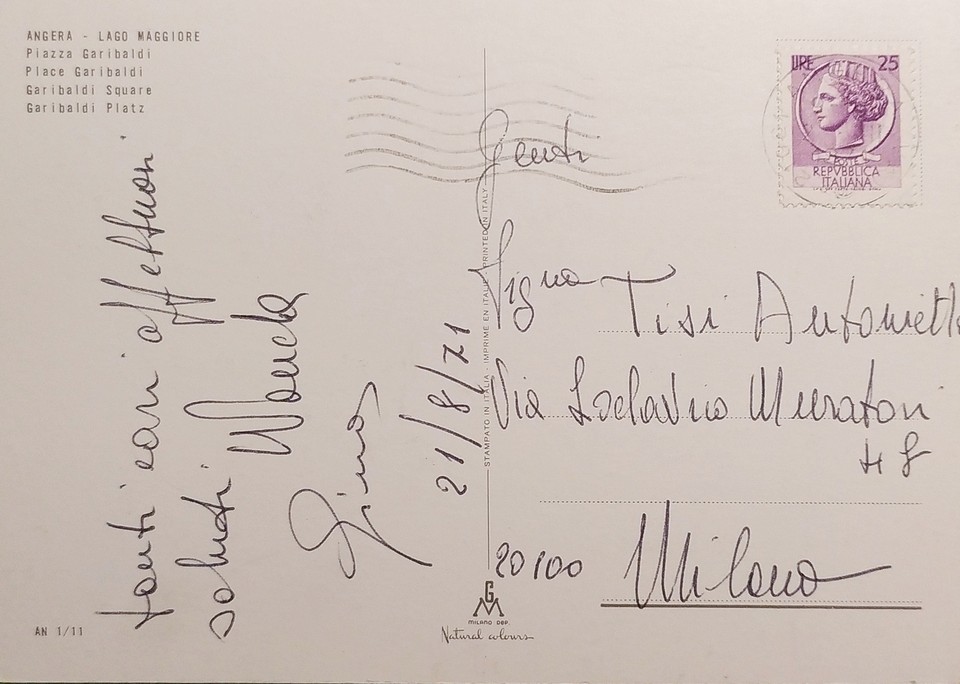 ANGERA - LAGO MAGGIORE
Piazza Garibaldi
Place Garibaldi
Garibaldi Square
Garibaldi Platz
tanti cari affettuosi
saluti Wanda
Gino
21/8/71
LIRE 25
POSTE
REPVBBLICA
ITALIANA
Gent.
Sigra Tisi Antonietta
Via Lodovico Muratori
48
20100 Milano
STAMPATO IN ITALIA - IMPRIMÉ EN ITALIE - PRINTED IN ITALY
GM
MILANO DEP.
Natural colours
AN 1/11